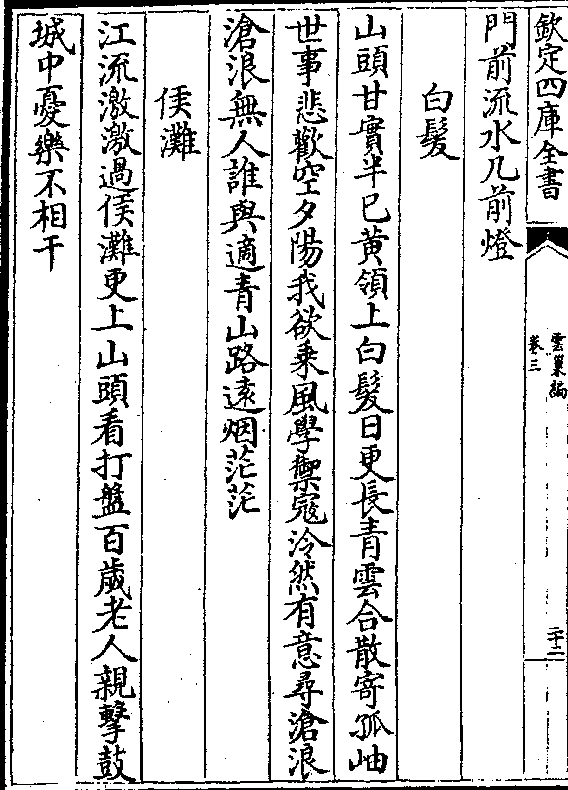 欽定四庫全書
雲巢編
卷三
二十二
門前流水几前燈
白髮
山頭甘實半已黃領上白髮日更長青雲合散寄孤岫
世事悲歡空夕陽我欲乘風學禦寇泠然有意尋滄浪
滄浪無人誰與適青山路遠烟茫茫
俟灘
江流激激過俟灘更上山頭看打盤百歲老人親擊鼓
城中憂樂不相干